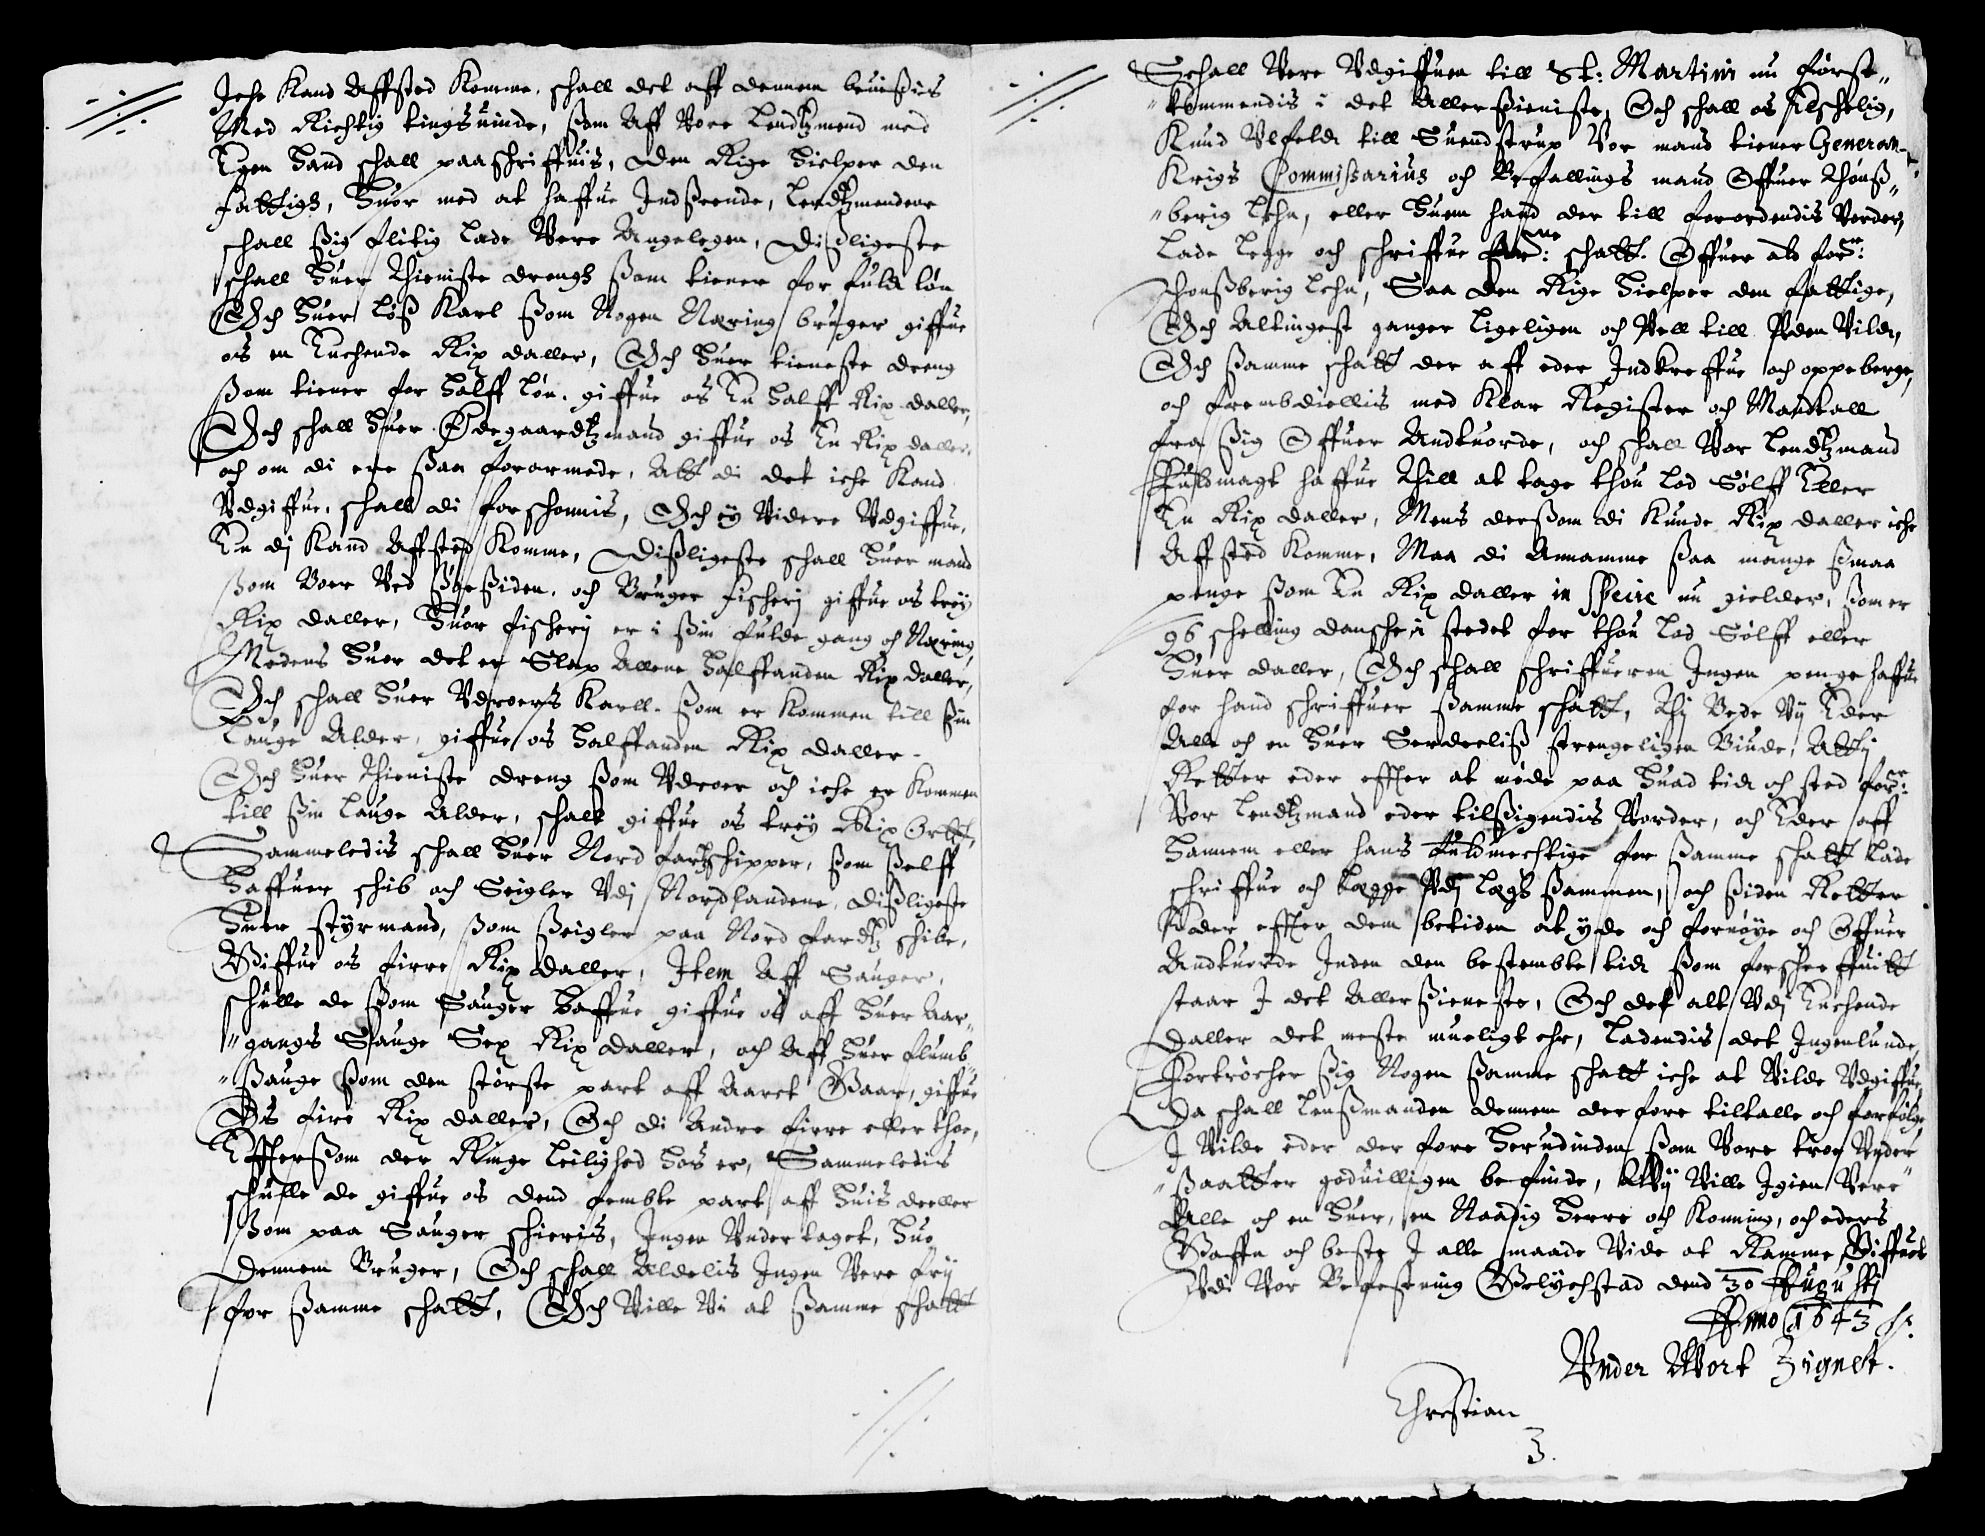 Iche Kand Affsted Komme, schall det aff dennem beuißis
Med Richtig tingsuinde, ßom Aff Vore Lendtzmend med
Egen Hand schall paaschriffuis, den Rige Hielper den
fattigs, Huor med at haffue Indßeende, Lendtzmendene
schall ßig flitig lade Vere Angelegen, Dißligeste
schall Huer Thieniste drengh ßom tiener for fuld løn
Och Huer løß Karl ßom Nogen Næring bruger giffue
os en Enchende Rix daller, Och Huer tieneste dreng
ßom tiener for Halff løn, giffue os En Halff Rix daller,
Och schall Huer Ødegaardtzmand giffue os En Rix daller,
och om di ere ßaa forarmede, Att di det iche Kand
Vdgiffue, schall di forschonnis, Och ey Videre Vdgiffue,
En dj Kand Affsted Komme, Dißligeste schall Huer mand
ßom Boer Ved Siøßiden, och Bruger fischerj giffue os trey
Rix daller, Huor fischerj er i ßin fulde gang och Næring,
Medens Huor det er Slap Allene Halffanden Rix daller,
Och schall Huer Vdroers Karll, ßom er Kommen till ßin
Lauge Alder, giffue os Halffanden Rix daller
Och Huer Thieniste dreng ßom Vdroer och iche er Kommen
till ßin Lauge Alder, schall giffue os trey Rix Ortt,
Sammeledis schall Huer Nordfartzschipper, ßom ßelff
Haffuer schib och Seigler Vdj Nordlandene, Dißligeste
Huer styrmand, ßom ßeigler paa Nordfardtz schibe,
Giffue os firre Rix daller, Item Aff Sauger,
schulle de ßom Sauger Haffue giffue os aff Huer Aar„
„gangs Sauge Sex Rix daller, och Aff Huer flumb„
„ßauge ßom den største part aff Aaret Gaar, giffue
Os fire Rix daller, Och di Andre firre eller thoe,
Effterßom der Ringe leilighed Hos er, Sammeledis
schulle de giffue os dend fembte part aff Huis deeller
ßom paa Sauger schieris, Ingen Vndertaget, Huo
Dennem Bruger, Och schall Aldelis Ingen Vere frij
for ßamme schatt, Och Ville Vi at ßamme schatt
Schall Vere Vdgiffuen till St: Martini nu først„
„kommendis i det Allerßieniste, Och schall os Elschelig,
Knud Vlfeldt till Suendstrup Vor mand tiener General
Krigs Commißarius och Befallings mand Offuer Thønß„
„berig Lehn, eller Huem hand der till forordendis Vorder,
Lade Legge och schriffue forne: schatt Offuer alt for:ne
Thønßberig Lehn, Saa den Rige Hielper den fattige,
Och Altingest ganger ligeligen och Vell till Vden Vild,
Och ßamme schatt der aff eder Indkreffue och oppeberge,
och frembdiellis med Klar Register och Mandtall
fra ßig Offuer Andtuorde, och schall Vor Lendtzmand
Fuldmagt haffue Thill at tage thou Lod Sølff Eller
En Rix daller, Mens derßom di Kunde Rix daller iche
Affsted Komme, Maa di Annamme ßaa mange ßmaa
penge ßom En Rix daller in specie nu gielder, ßom er
96 schelling dansche i stedet for thou Lod Sølff eller
Huer daller, Och schall schriffueren Ingen penge haffue
for hand schriffuer ßamme schatt, Thj Bede Vij Eder
Alle och en Huer Serdeeliß strengeligen Biude, Att j
Retter eder effter at møde paa Huad tid och sted for:ne
Vor Lendtzmand eder tilßigendis Vorder, och Eder aff
Hannem eller hans fuldmechtige for ßamme schatt Lade
schriffue och Legge Vdj Lægh ßammen, och ßiden Retter
Eder effter dem betiden at yde och fornøye och Offuer
Andtuorde Inden den bestembte tid ßom forscheeffuitt
staar I det Allerßieneste, Och det alt Vdj Enchende
Daller det meste mueligt ehr, Ladendis det Ingenlunde,
Fortrøcher ßig Nogen ßamme schatt iche at Vilde Vdgiffue,
Da schall Lenßmanden dennem derfore tiltalle och forfølge,
I Vilde eder der fore Herudinden ßom Vore troe Vnder„
„ßaatter goduilligen befinde, Vij Ville Igien Vere
Alle och en Huer, en Naadig Herre och Konning, och eders
Gaffn och beste I alle maade Vide at Ramme, Giffuet
Vdi Vor Befestning Glychstad dend 30 Augustij
Anno 1643
Vnder Vort Zignet.
Chrestian
3.